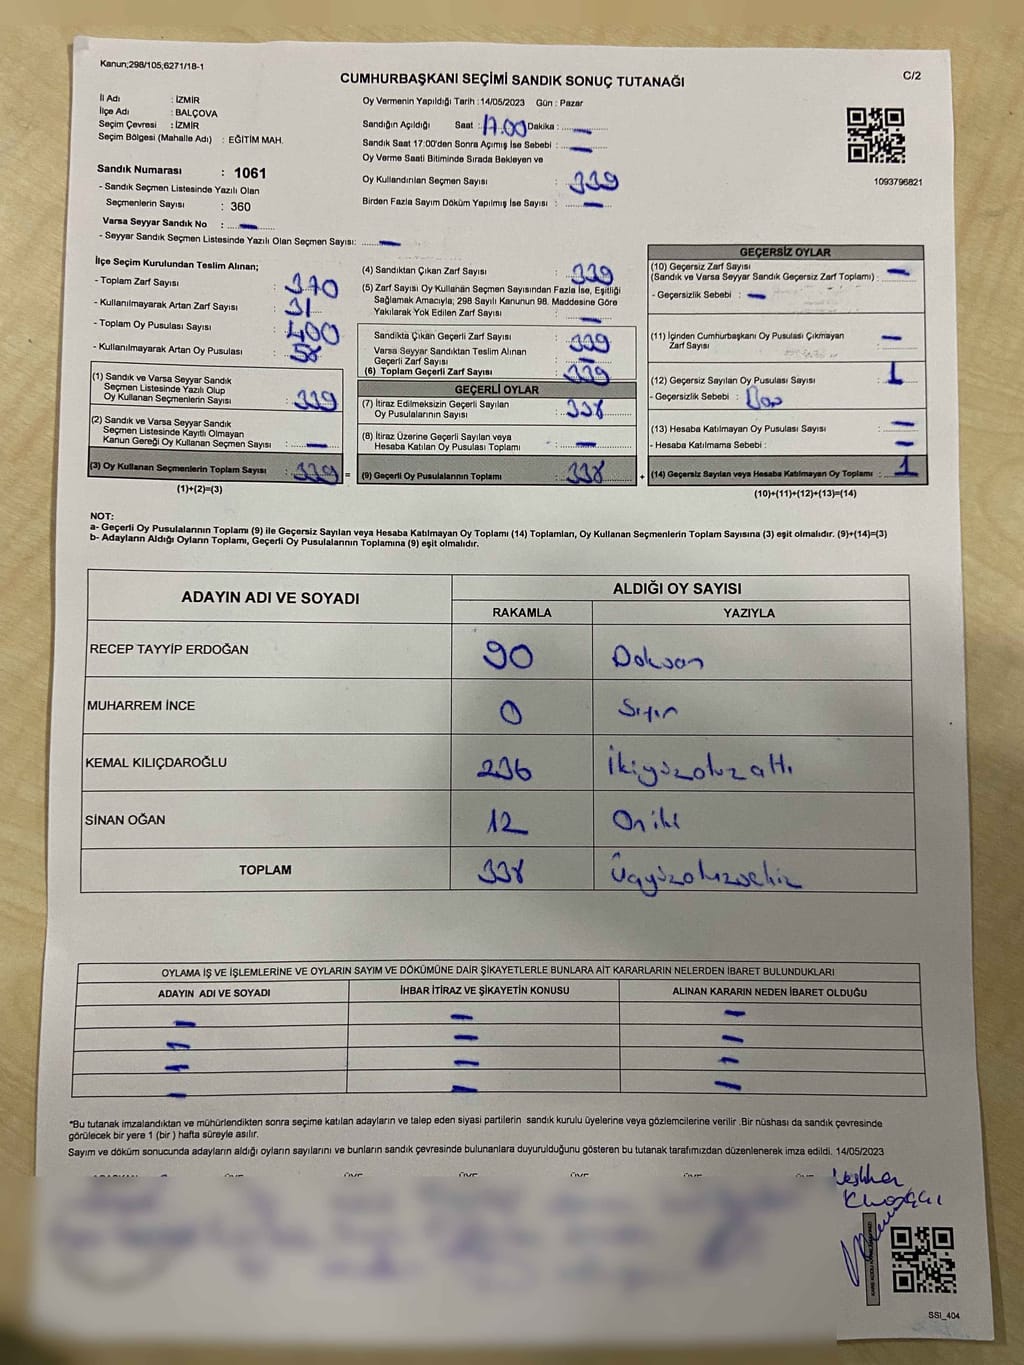 Kanun;298/105,6271/18-1
CUMHURBAŞKANI SEÇİMİ SANDIK SONUÇ TUTANAĞI
C/2
İl Adı : İZMİR
İlçe Adı : BALÇOVA
Seçim Çevresi : İZMİR
Seçim Bölgesi (Mahalle Adı) : EĞİTİM MAH.
Sandık Numarası : 1061
- Sandık Seçmen Listesinde Yazılı Olan
Seçmenlerin Sayısı : 360
Varsa Seyyar Sandık No : —
- Seyyar Sandık Seçmen Listesinde Yazılı Olan Seçmen Sayısı: —
Oy Vermenin Yapıldığı Tarih :14/05/2023 Gün : Pazar
Sandığın Açıldığı Saat : 17.00 Dakika : —
Sandık Saat 17:00'den Sonra Açımış İse Sebebi : —
Oy Verme Saati Bitiminde Sırada Bekleyen ve
Oy Kullandırılan Seçmen Sayısı : 339
Birden Fazla Sayım Döküm Yapılmış İse Sayısı : —
1093796821
İlçe Seçim Kurulundan Teslim Alınan;
- Toplam Zarf Sayısı : 370
- Kullanılmayarak Artan Zarf Sayısı : 31
- Toplam Oy Pusulası Sayısı : 400
- Kullanılmayarak Artan Oy Pusulası :
(1) Sandık ve Varsa Seyyar Sandık
Seçmen Listesinde Yazılı Olup
Oy Kullanan Seçmenlerin Sayısı : 339
(2) Sandık ve Varsa Seyyar Sandık
Seçmen Listesinde Kayıtlı Olmayan
Kanun Gereği Oy Kullanan Seçmen Sayısı : —
(3) Oy Kullanan Seçmenlerin Toplam Sayısı : 339 =
(1)+(2)=(3)
(4) Sandıktan Çıkan Zarf Sayısı : 339
(5) Zarf Sayısı Oy Kullanan Seçmen Sayısından Fazla İse, Eşitliği
Sağlamak Amacıyla; 298 Sayılı Kanunun 98. Maddesine Göre
Yakılarak Yok Edilen Zarf Sayısı : —
Sandıkta Çıkan Geçerli Zarf Sayısı : 339
Varsa Seyyar Sandıktan Teslim Alınan
Geçerli Zarf Sayısı : —
(6) Toplam Geçerli Zarf Sayısı : 339
GEÇERLİ OYLAR
(7) İtiraz Edilmeksizin Geçerli Sayılan
Oy Pusulalarının Sayısı : 338
(8) İtiraz Üzerine Geçerli Sayılan veya
Hesaba Katılan Oy Pusulası Toplamı : —
(9) Geçerli Oy Pusulalarının Toplamı : 338 +
GEÇERSİZ OYLAR
(10) Geçersiz Zarf Sayısı
(Sandık ve Varsa Seyyar Sandık Geçersiz Zarf Toplamı) : —
- Geçersizlik Sebebi : —
(11) İçinden Cumhurbaşkanı Oy Pusulası Çıkmayan
Zarf Sayısı : —
(12) Geçersiz Sayılan Oy Pusulası Sayısı : 1
- Geçersizlik Sebebi : Boş
(13) Hesaba Katılmayan Oy Pusulası Sayısı : —
- Hesaba Katılmama Sebebi : —
(14) Geçersiz Sayılan veya Hesaba Katılmayan Oy Toplamı : 1
(10)+(11)+(12)+(13)=(14)
NOT:
a- Geçerli Oy Pusulalarının Toplamı (9) ile Geçersiz Sayılan veya Hesaba Katılmayan Oy Toplamı (14) Toplamları, Oy Kullanan Seçmenlerin Toplam Sayısına (3) eşit olmalıdır. (9)+(14)=(3)
b- Adayların Aldığı Oyların Toplamı, Geçerli Oy Pusulalarının Toplamına (9) eşit olmalıdır.
ADAYIN ADI VE SOYADI ALDIĞI OY SAYISI
RAKAMLA YAZIYLA
RECEP TAYYİP ERDOĞAN 90 Doksan
MUHARREM İNCE 0 Sıfır
KEMAL KILIÇDAROĞLU 236 İkiyüzotuzaltı
SİNAN OĞAN 12 Oniki
TOPLAM 338 Üçyüzotuzsekiz
OYLAMA İŞ VE İŞLEMLERİNE VE OYLARIN SAYIM VE DÖKÜMÜNE DAİR ŞİKAYETLERLE BUNLARA AİT KARARLARIN NELERDEN İBARET BULUNDUKLARI
ADAYIN ADI VE SOYADI İHBAR İTİRAZ VE ŞİKAYETİN KONUSU ALINAN KARARIN NEDEN İBARET OLDUĞU
— — —
— — —
— — —
— — —
*Bu tutanak imzalandıktan ve mühürlendikten sonra seçime katılan adayların ve talep eden siyasi partilerin sandık kurulu üyelerine veya gözlemcilerine verilir .Bir nüshası da sandık çevresinde
görülecek bir yere 1 (bir ) hafta süreyle asılır.
Sayım ve döküm sonucunda adayların aldığı oyların sayılarını ve bunların sandık çevresinde bulunanlara duyurulduğunu gösteren bu tutanak tarafımızdan düzenlenerek imza edildi. 14/05/2023
SSI_404